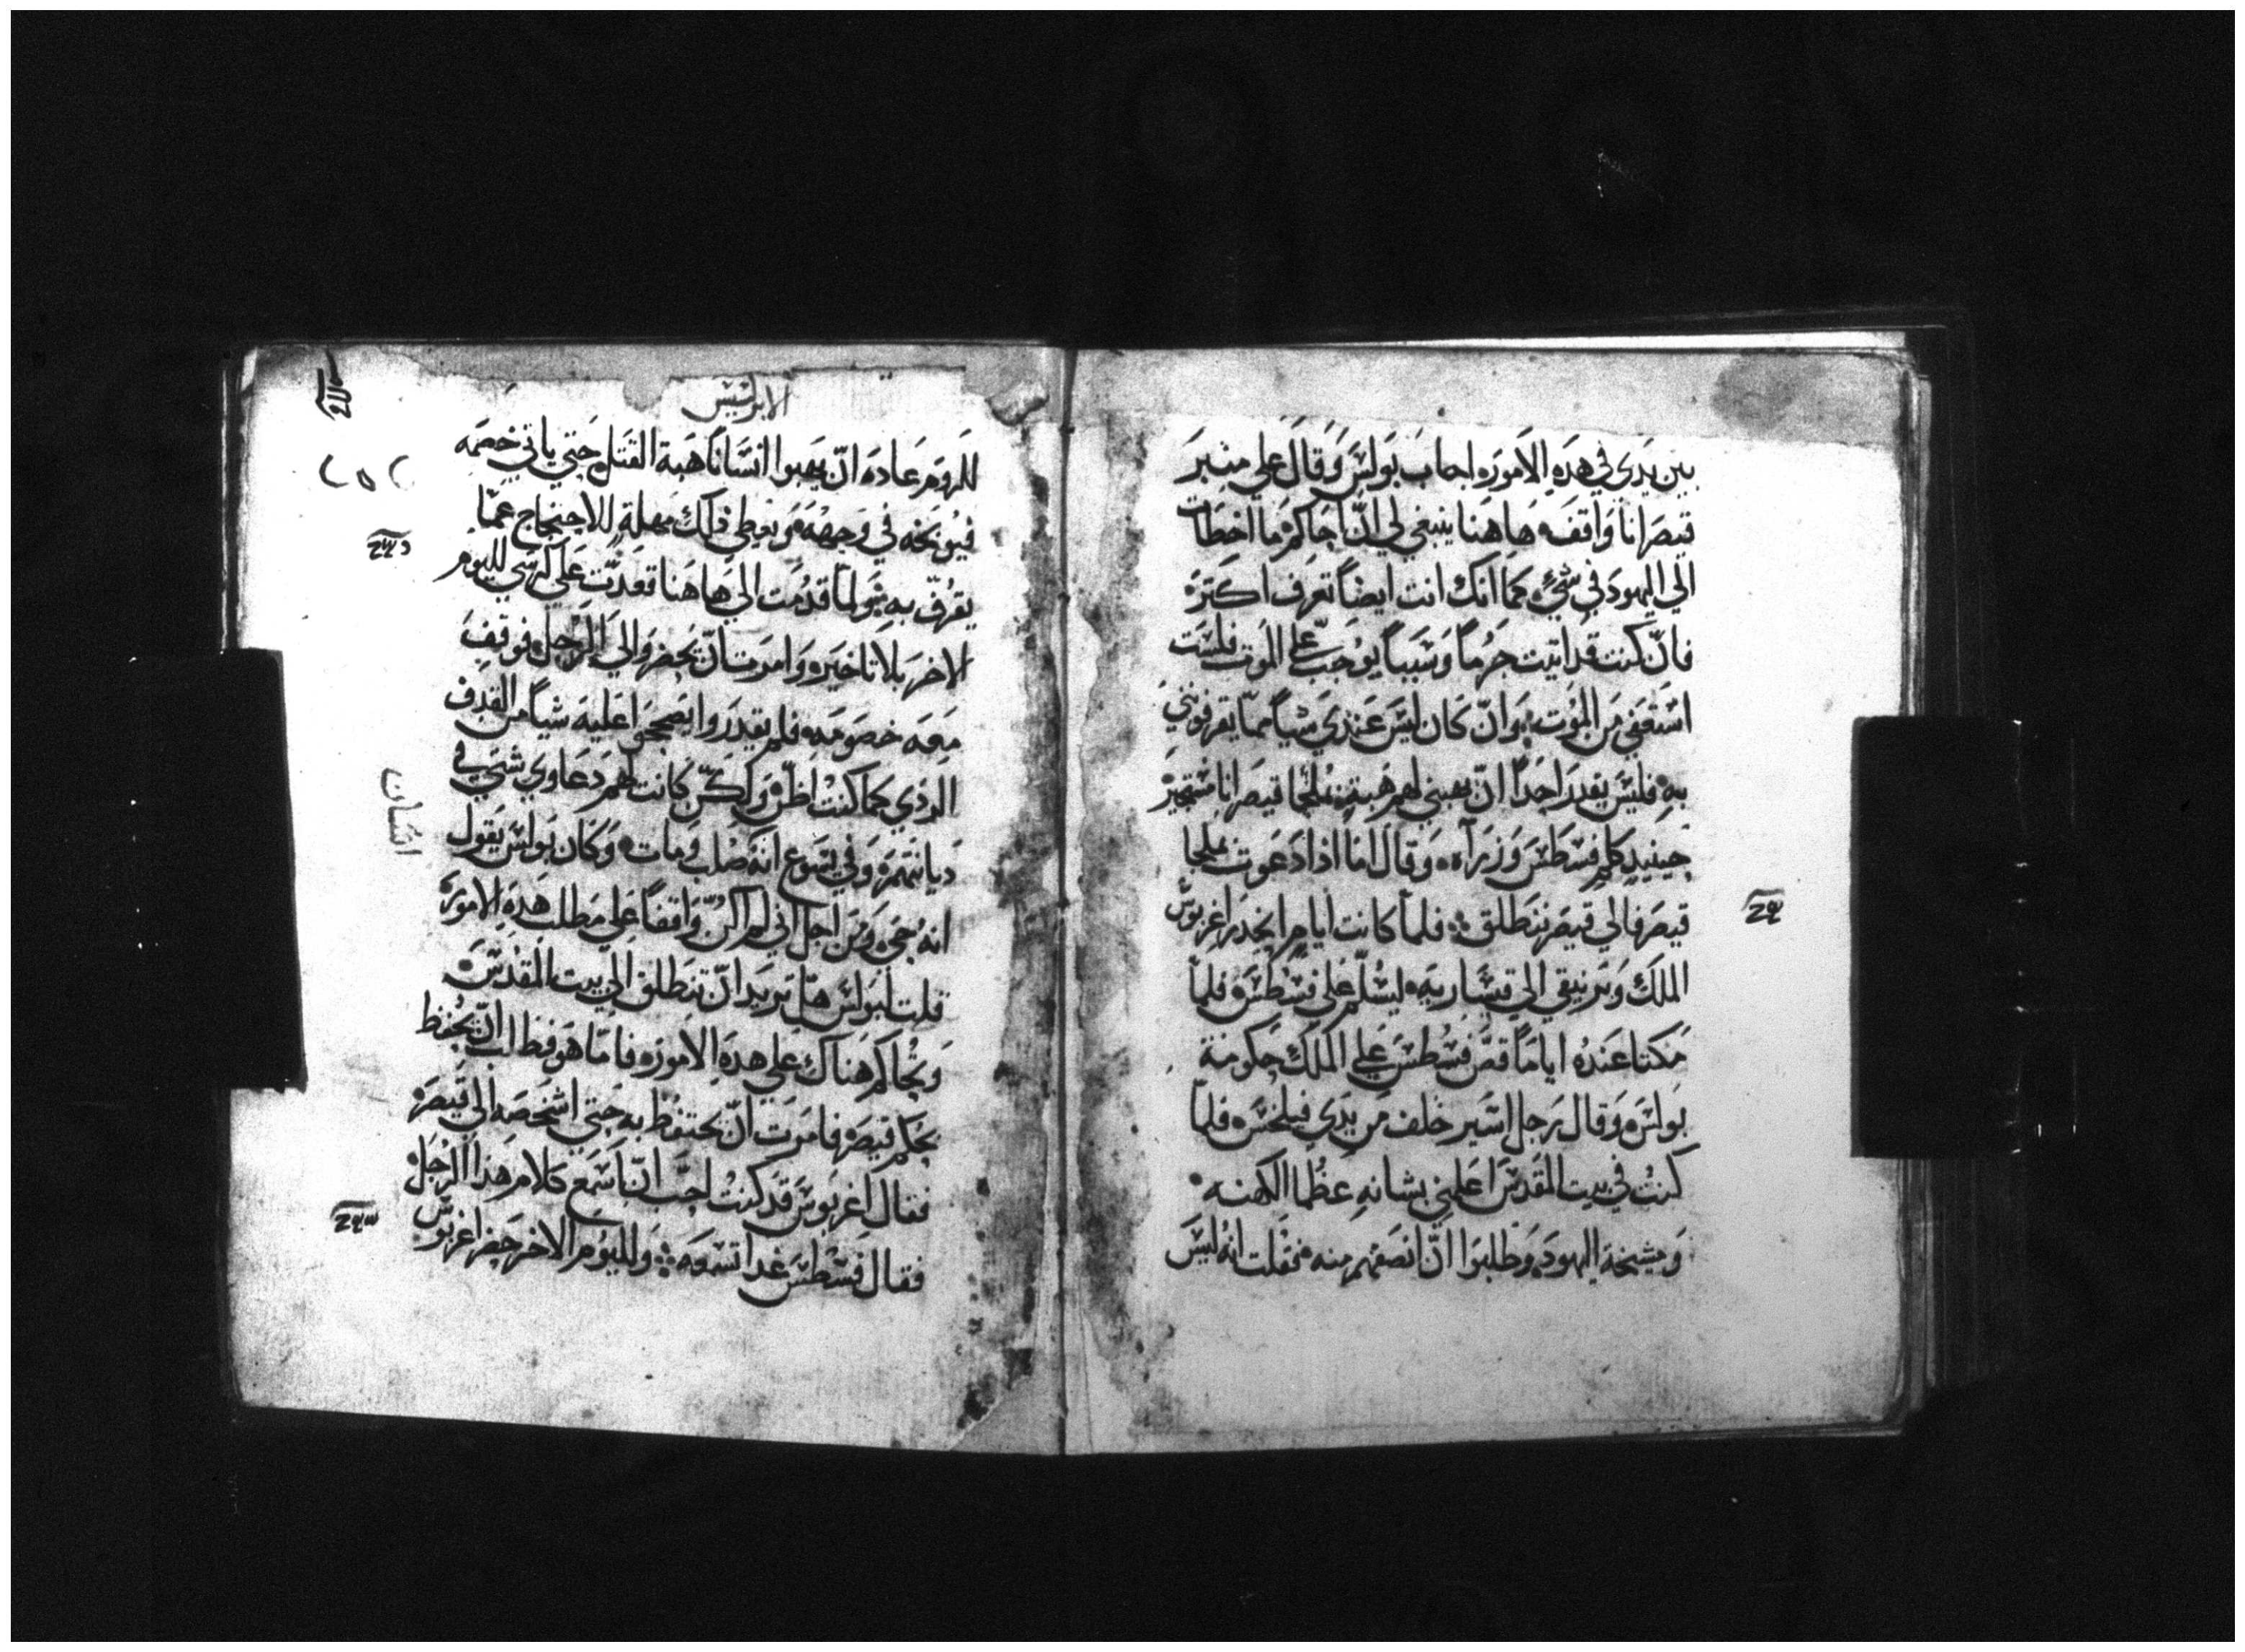 بين يدي في هذه الامور٥ اجاب بولس وقال علي منبر
قيصر انا واقف٥ هاهنا ينبغي لي انّ احاكم٥ ما اخطات
الي اليهود في شي٥ كما انك انت ايضاً تعرف اكتر٥
فانّ كنت قد اتيت جرماً وسبباً يوجب عليّ الموت فلست
استعفي من الموت٥ وانّ كان ليس عندي شياً مما يقرفوني
به٥ فليس يقدر احداً انّ يهبني لهم هبة٥ بملجا قيصر انا مستجير
حينيد كلم فسطس وزرآه٥ وقال اما اذا دعوت بملجا
قيصر فالي قيصر ننطلق܀ فلما كانت ايام٥ انحدر اغربوس
الملك وبرنيقي الي قيساريه٥ ليسلم علي فسطس٥ فلما
مكتا عنده اياماً قص فسطس علي الملك حكومة
بولس٥ وقال رجل اسير خلف من يدي فيلخس٥ فلما
كنت في بيت المقدس اعلمني بشانه عظما الكهنه٥
ومشيخة اليهود٥ وطلبوا انّ انصفهم منه٥ فقلت انه ليس
الابركسيس
للروم عادة انّ يهبوا انساناً هبة القتل٥ حتي ياتي خصمه
فيوبخه في وجهه٥ ويعطي ذلك مهلة للاحتجاج عما
يقرف به٥ ولما قدمت الي هاهنا قعدت علي كرسي لليوم
الاخر بلا تاخير٥ وامرت انّ يحضروا الي الرجل٥ فوقف
معه خصومه٥ فلم يقدروا يصححوا عليه شياً من القدف
الردي كما كنت اظنّ٥ ولكنّ كانت لهم دعاوي شتي في
ديانتهم٥ وفي يسوع انه صلب ومات٥ وكان بولس يقول
انه حي٥ ومن اجل اني لم اكنّ واقفاً علي مطلب هذه الامور٥
قلت لبولس هل تريد انّ تنطلق الي بيت المقدس٥
وتحاكم هناك علي هده الامور٥ فاما هو فطالب انّ يحفظ
بحكم قيصر٥ فامرت انّ يحتفظ به حتي اشخصه الي قيصر٥
فقال اغربوس قد كنت احب انّ اسمع كلام هذا الرجل٥
فقال فسطس غدا تسمعه܀ ولليوم الاخر حضر اغربوس
انسان